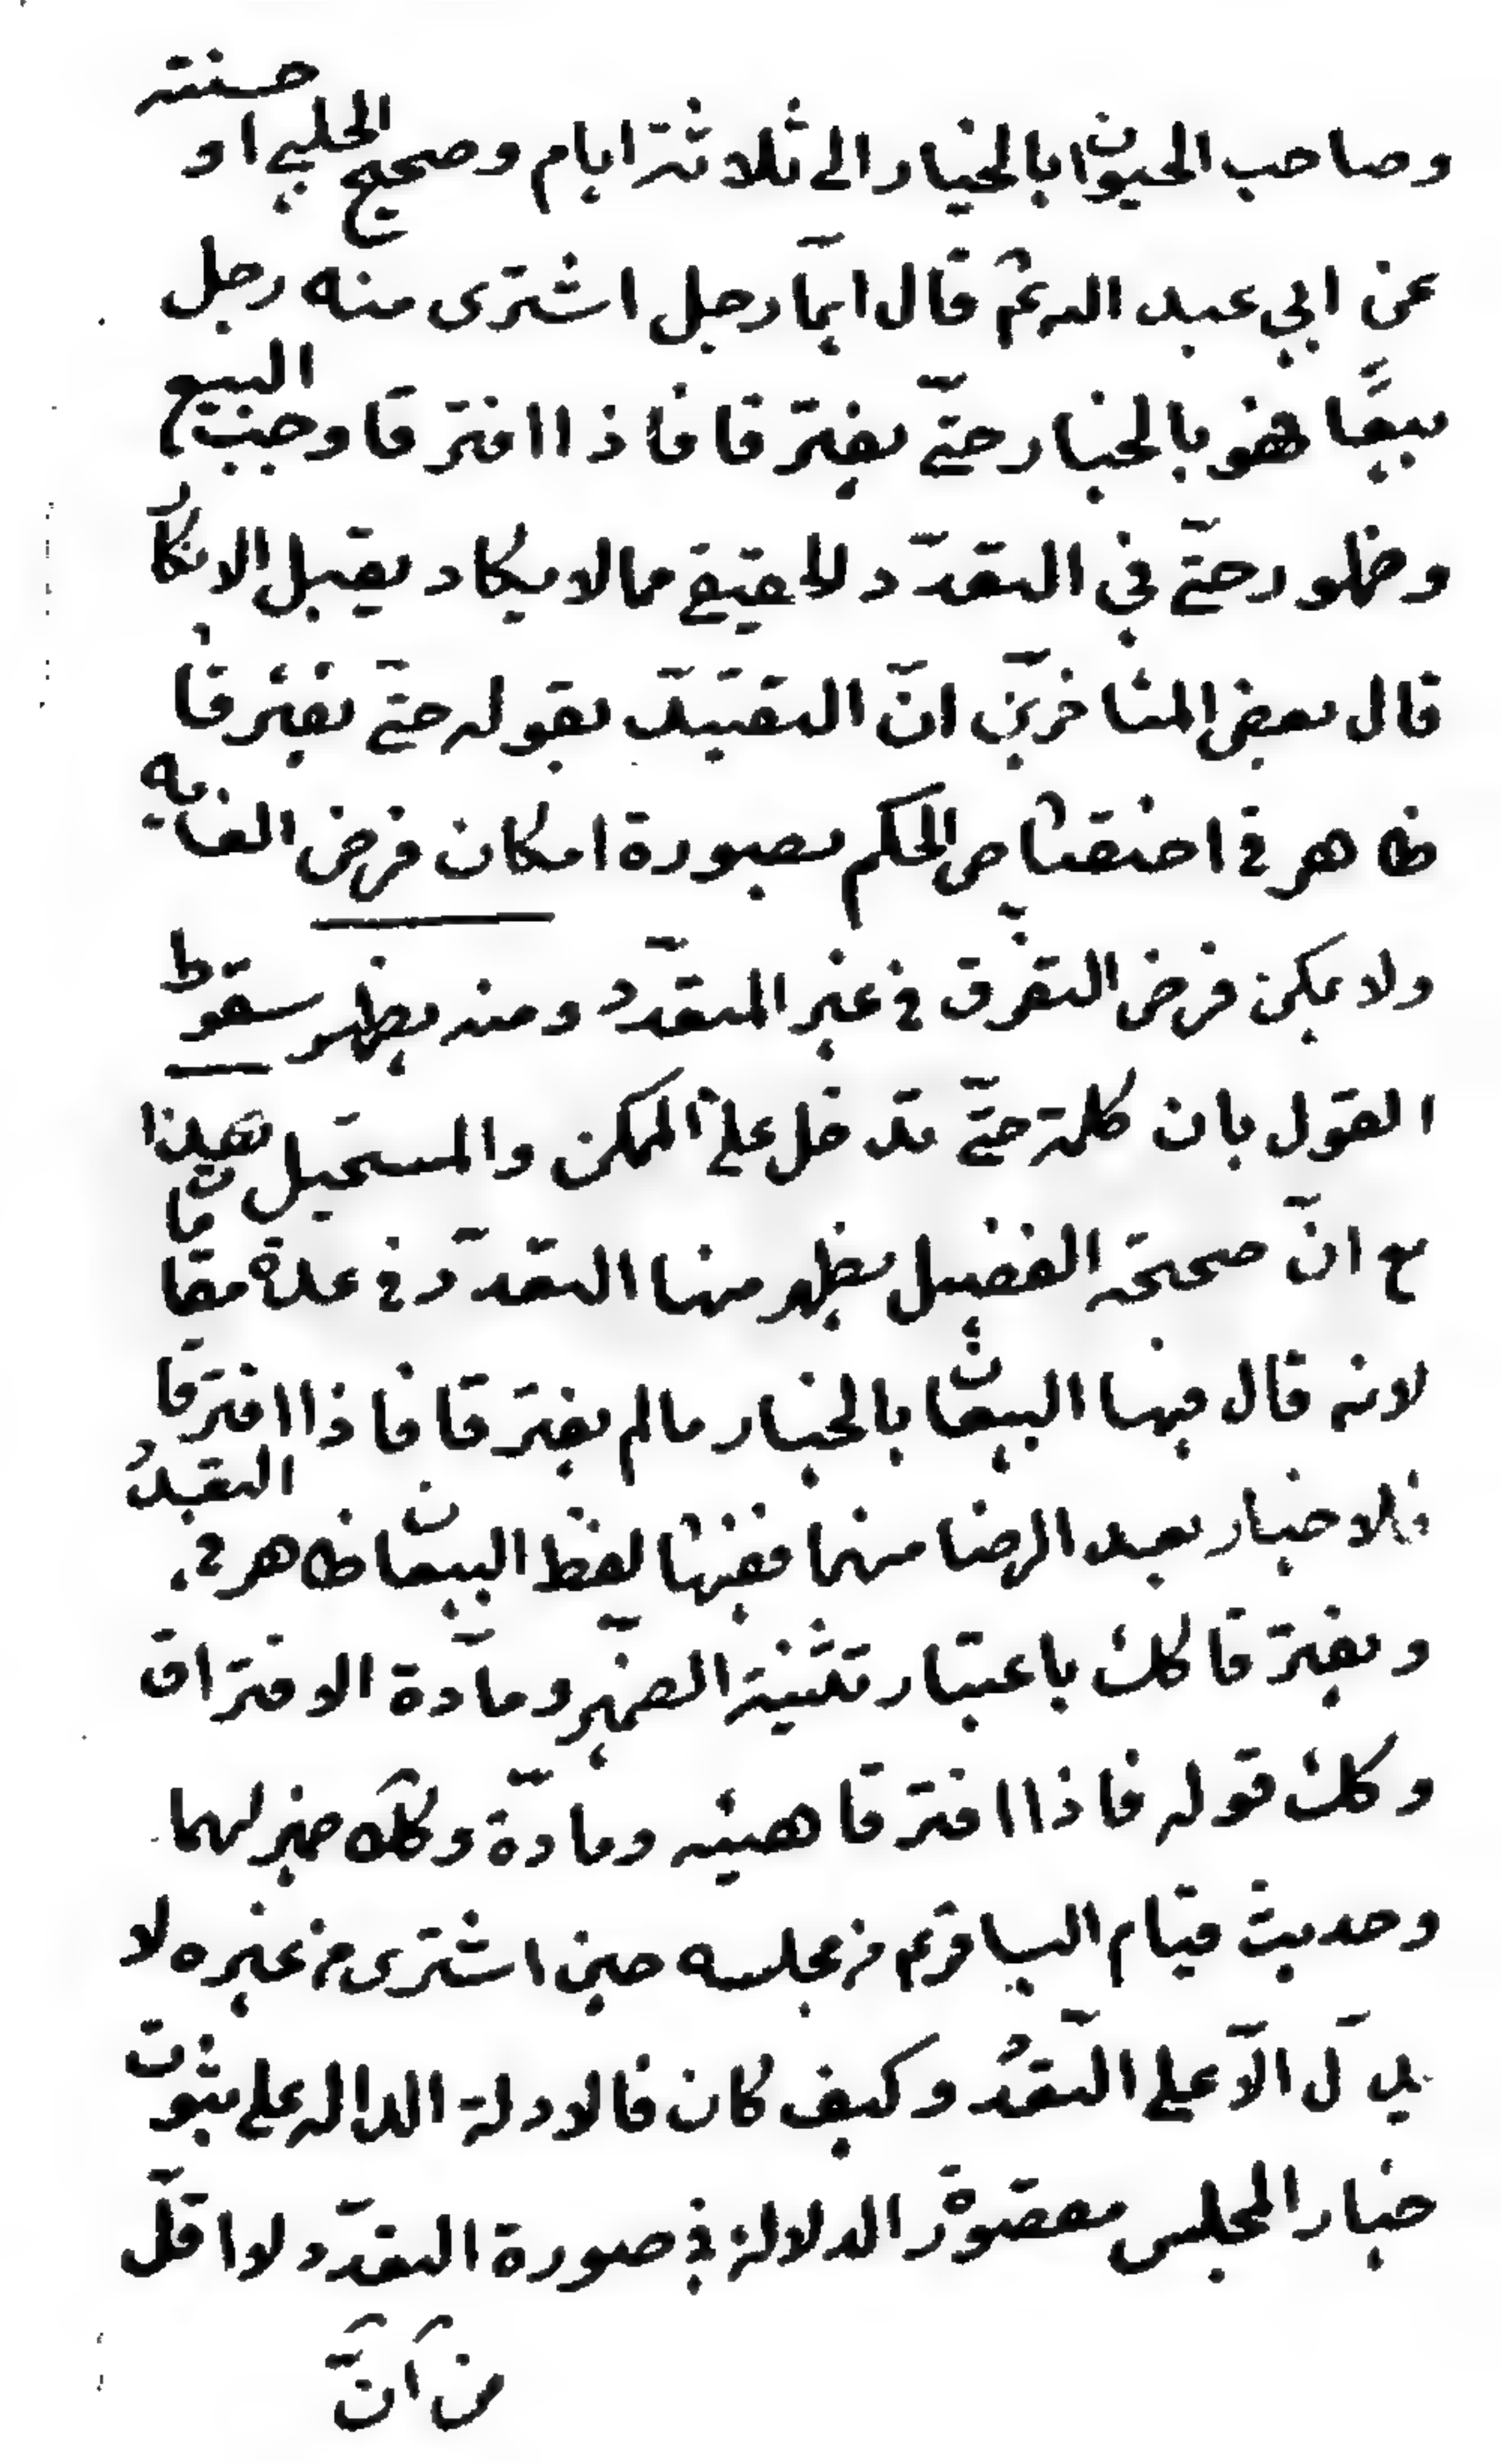 وصاحب الحيوان بالخيار الى ثلاثة ايام وصحيح الحلبي او حسنته
عن ابي عبد الله ع قال ايّما رجل اشترى منه رجل
بيعًا فهو بالخيار حتّى يفترقا فاذا افترقا وجب البيع
وظهور حتّى في التعدّد الحقيقي مما لا يكاد يقبل الانكار
قال بعض المتاخرين انّ التقييد بقوله حتّى يفترقا
ظاهر في اختصاص الحكم بصورة امكان فرض الغاية
ولا يمكن فرض التفرّق في غير المتعدّد ومنه يظهر سقوط
القول بان كلمة حتّى تدخل على الممكن والمستحيل هذا
مع انّ صحيحة الفضيل يظهر منها التعدّد في عدة مقامات
لانه قال فيها البيعان بالخيار ما لم يفترقا فاذا افترقا
فلا خيار بعد الرضا منهما ففيها لفظ البيعان ظاهر في التعدد
ويفترقا كك باعتبار تثنية الضمير ومادّة الافتراق
وكك قوله فاذا افترقا هيئه ومادّة وكك ضمير لهما
وحديث قيام الباقر ع من مجلسه حين اشترى من غيره لا
يدلّ الّا على التعدد وكيف كان فالادلة الداله على ثبوت
خيار المجلس مقصورة الدلالة في صورة التعدّد ولا اقلّ
من انّ